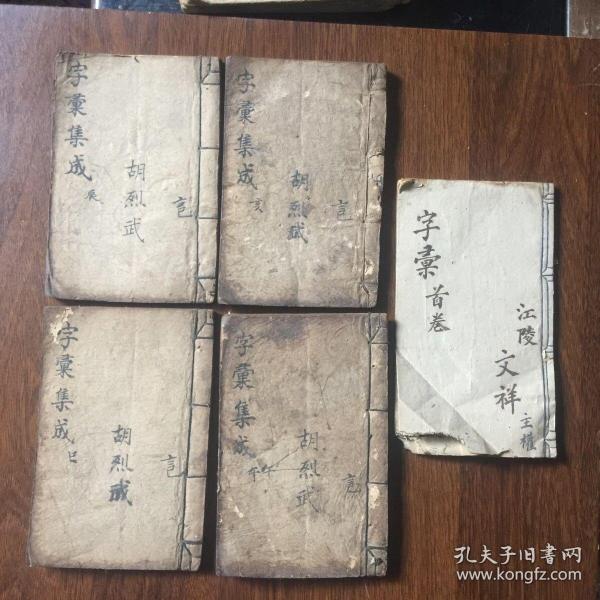 字彙集成
辰
胡烈武
言
字彙集成
亥
胡烈武
言
字彙集成
巳
胡烈武
言
字彙集成
午
午
胡烈武
言
字彙
首卷
江陵
文祥
主權
孔夫子旧书网
www.kongfz.com